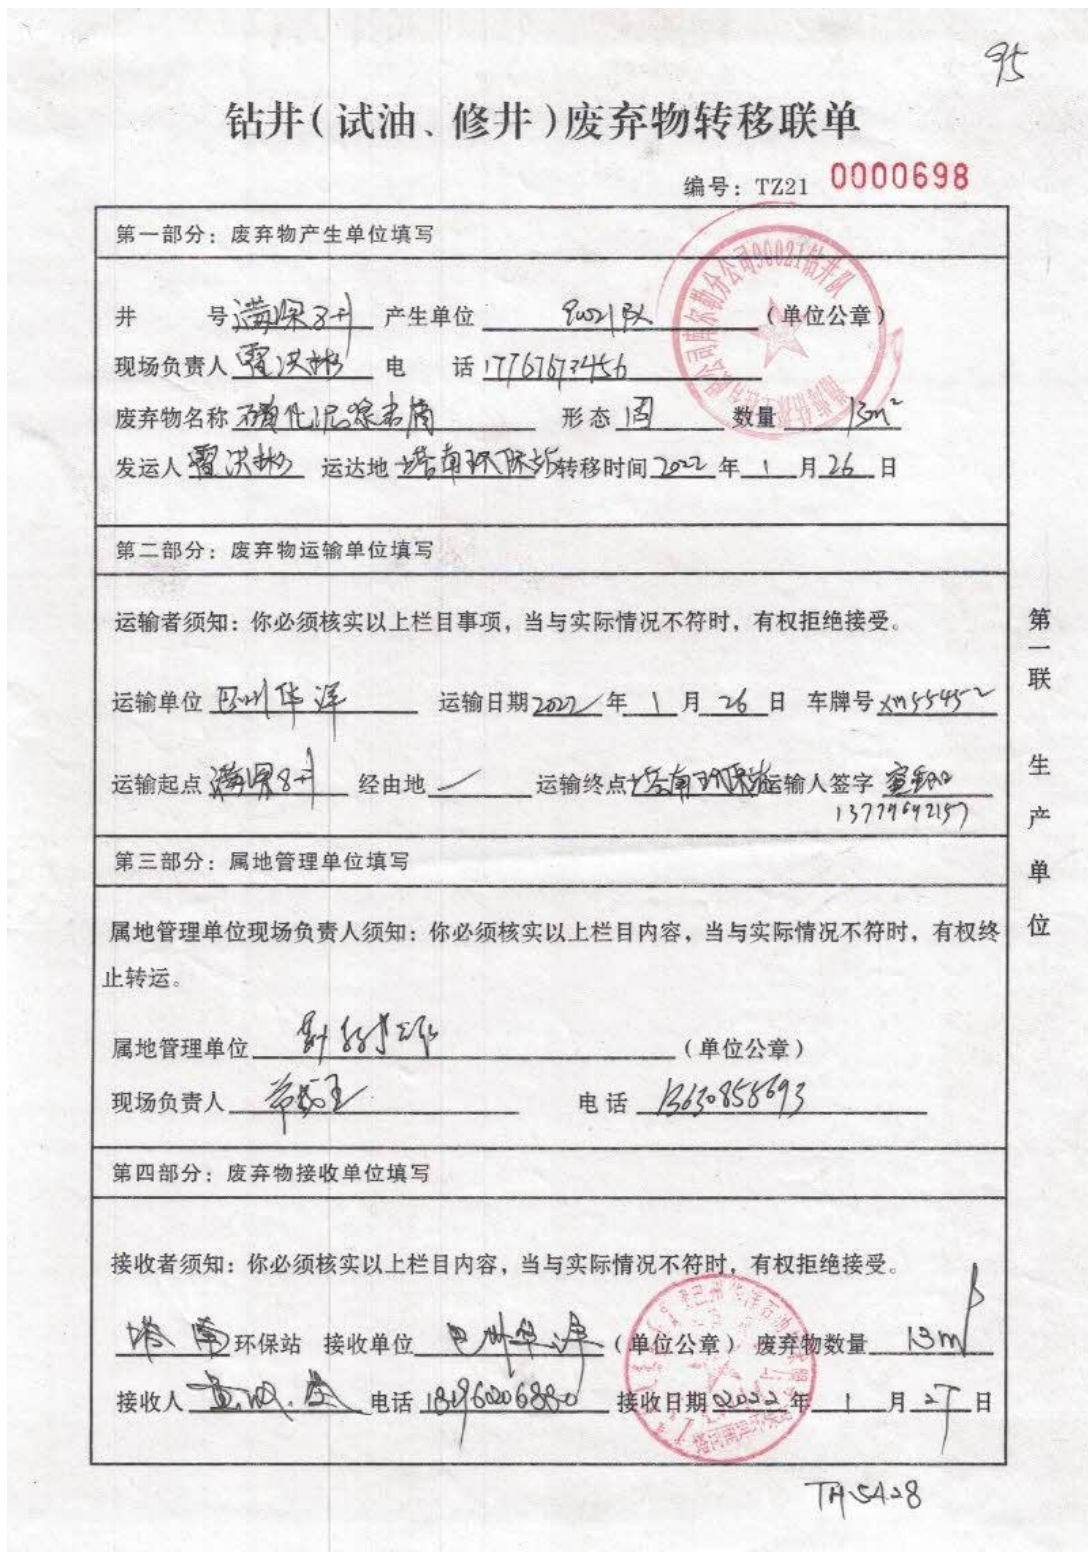 95
钻井(试油、修井)废弃物转移联单
编号：TZ21 0000698
第一部分：废弃物产生单位填写
井 号 满深8井 产生单位 90021队 （单位公章）
现场负责人 雷洪彬 电 话 17767673456
废弃物名称 磺化泥浆岩屑 形态 固 数量 13m²
发运人 雷洪彬 运达地 塔南环保站 转移时间 2022 年 1 月 26 日
第二部分：废弃物运输单位填写
运输者须知：你必须核实以上栏目事项，当与实际情况不符时，有权拒绝接受。
运输单位 巴州华洋 运输日期 2022 年 1 月 26 日 车牌号
运输起点 满深8井 经由地 运输终点 塔南环保站 运输人签字
13779642157
第三部分：属地管理单位填写
属地管理单位现场负责人须知：你必须核实以上栏目内容，当与实际情况不符时，有权终
止转运。
属地管理单位 （单位公章）
现场负责人 电话 13630858693
第四部分：废弃物接收单位填写
接收者须知：你必须核实以上栏目内容，当与实际情况不符时，有权拒绝接受。
塔南 环保站 接收单位 巴州华洋 （单位公章） 废弃物数量 13m³
接收人 电话 接收日期 2022 年 1 月 27 日
TA5428
第一联 生产单位